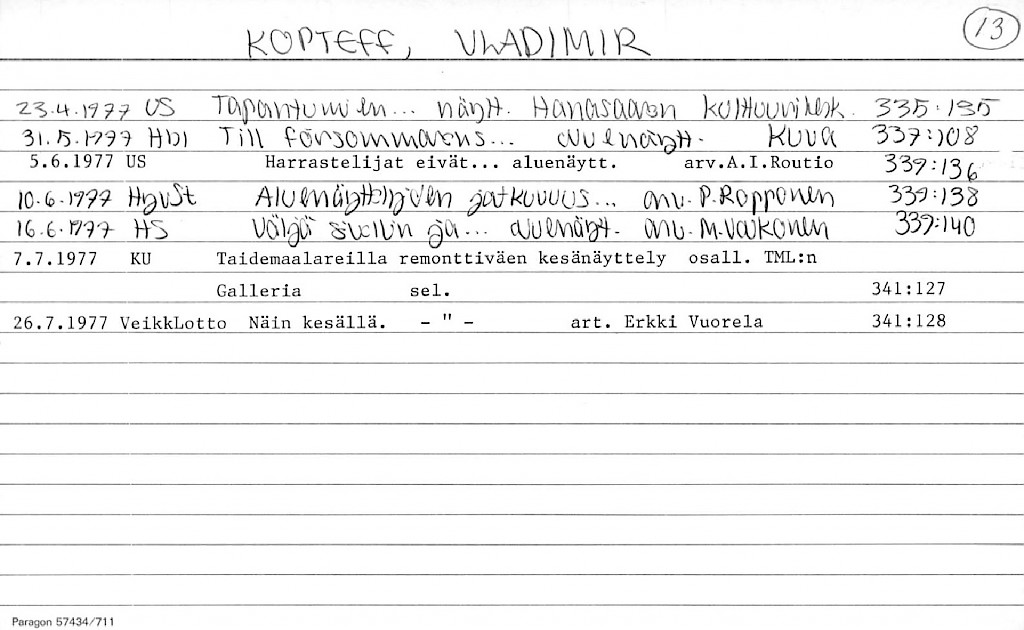 KOPTEFF, VLADIMIR 13
23.4.1977 US Tapahtumien... näytt. Hanasaaren kulttuurikesk. 335:135
31.5.1977 Hbl Till försommarens... aluenäytt. kuva 337:108
5.6.1977 US Harrastelijat eivät... aluenäytt. arv.A.I.Routio 339:136
10.6.1977 Aluenäyttelyiden jatkuvuus... arv. P. Rapponen 339:138
16.6.1977 HS ja... aluenäyt. arv. M. Valkonen 339:140
7.7.1977 KU Taidemaalareilla remonttiväen kesänäyttely osall. TML:n
Galleria sel. 341:127
26.7.1977 VeikkLotto Näin kesällä. - " - art. Erkki Vuorela 341:128
Paragon 57434/711